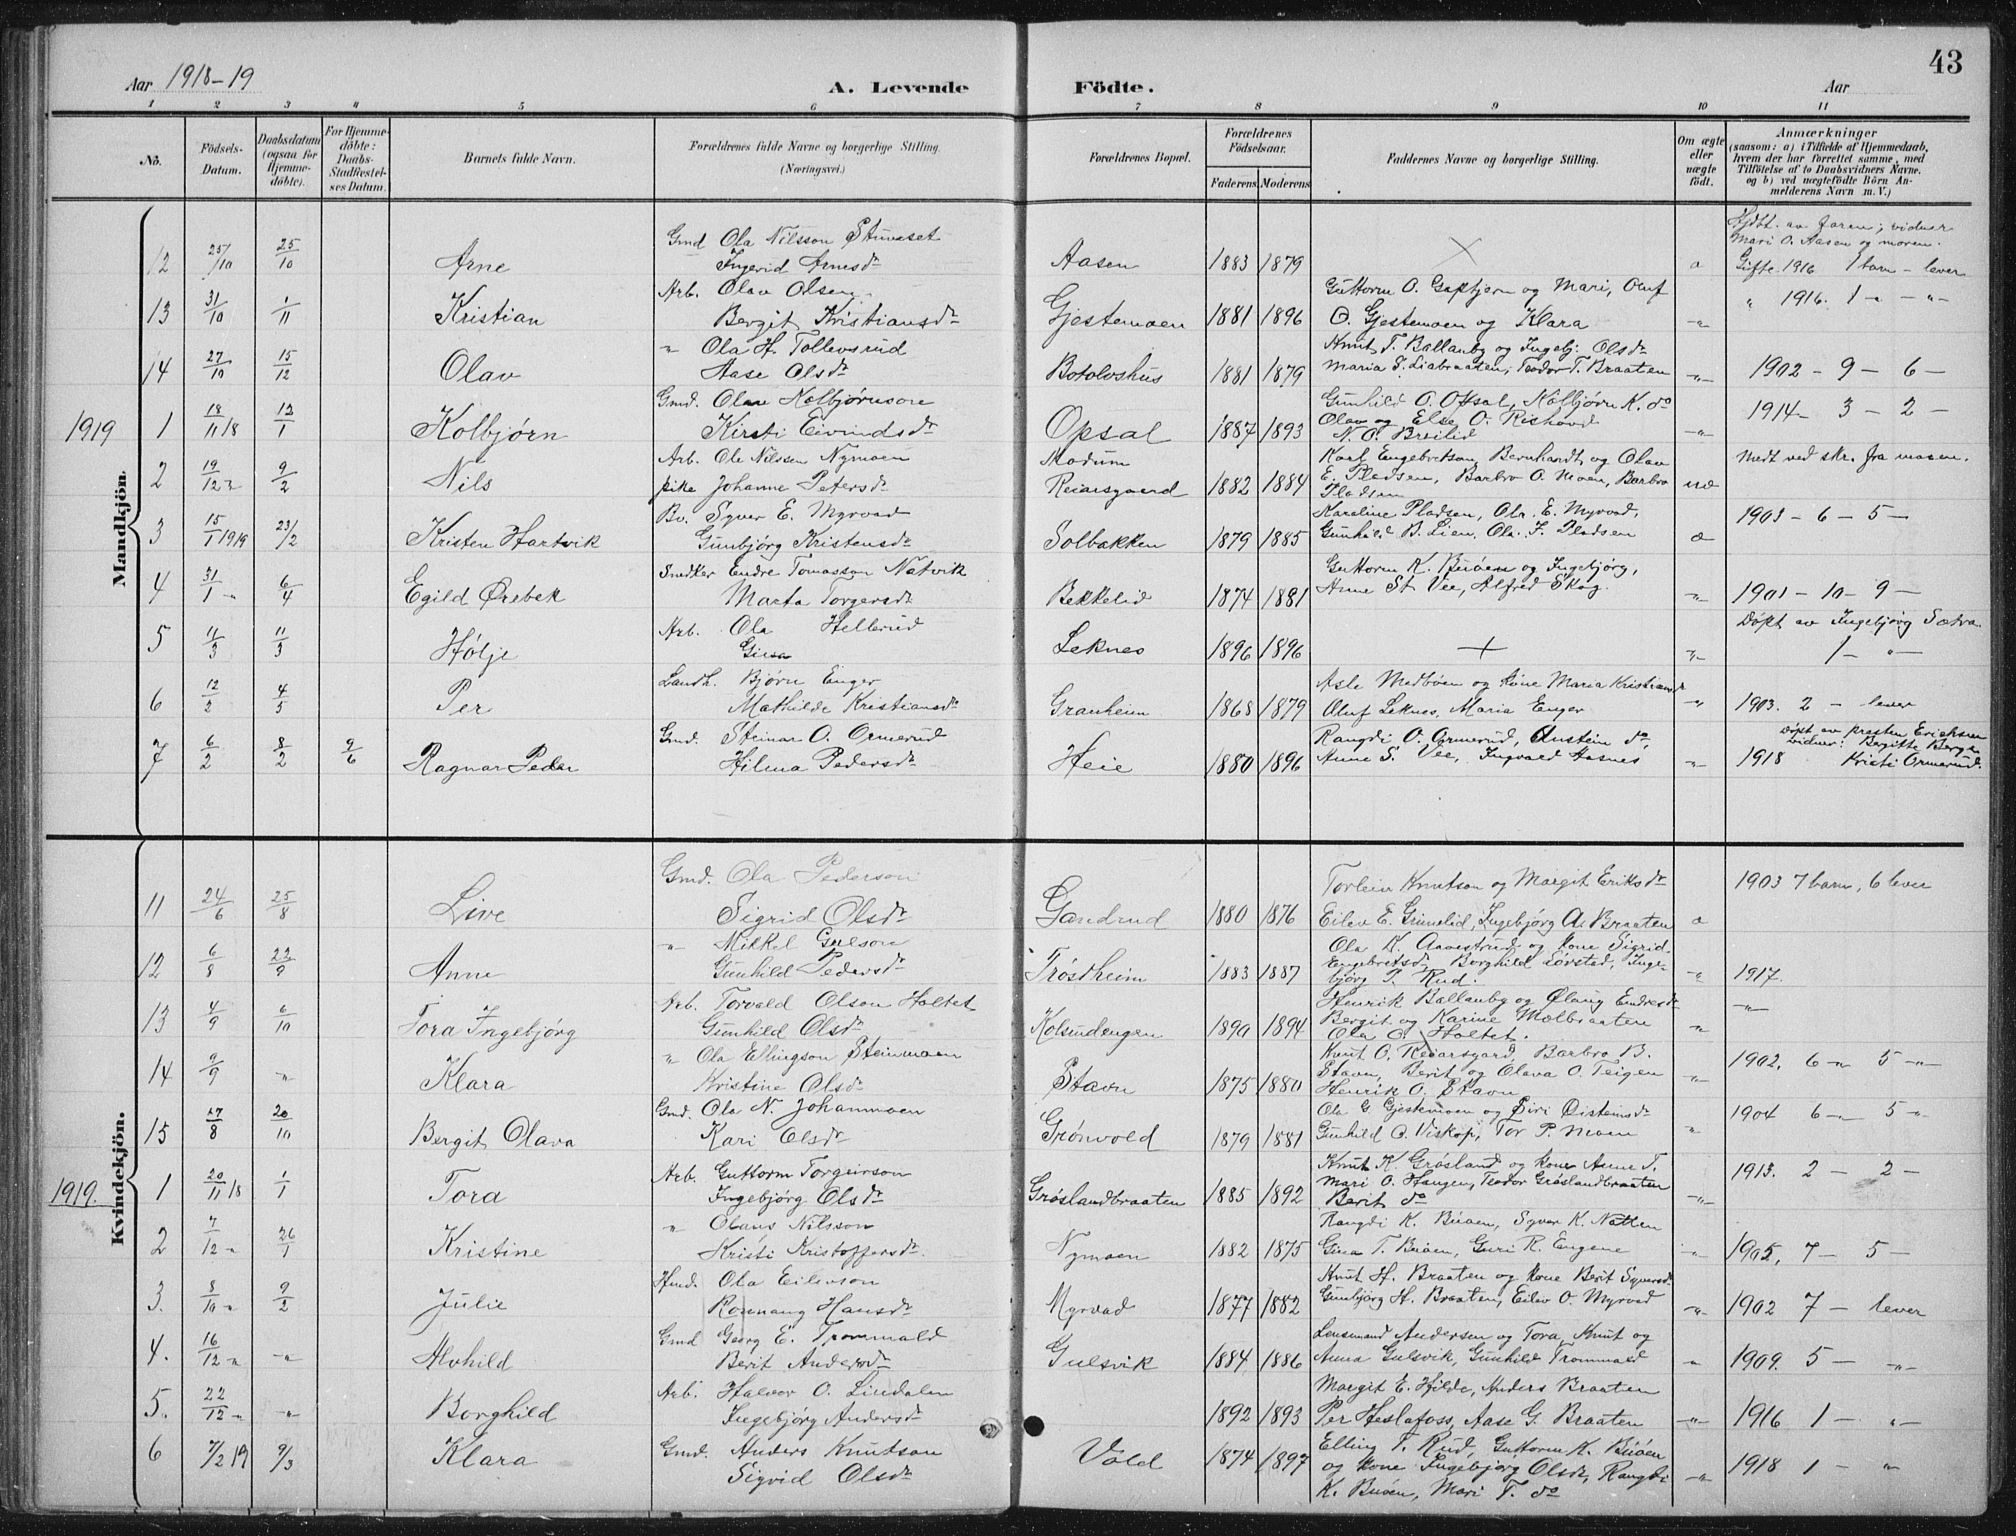 43
Aar 1918-19
A. Levende
Födte.
Aar
1 2 3 4 5 6 7 8 9 10 11
No.
Födsels-
Datum.
Daabsdatum
(ogsaa for
Hjemme-
döbte).
For Hjemme-
döbte:
Daabs-
Stadfæstel-
ses Datum.
Barnets fulde Navn.
Forældrenes fulde Navne og borgerlige Stilling.
(Næringsvei.)
Forældrenes Bopæl.
Forældrenes
Födselsaar.
Faderens. Moderens.
Faddernes Navne og borgerlige Stilling.
Om ægte
eller
uægte
födt.
Anmærkninger
(saasom: a) i Tilfælde af Hjemmedaab,
hvem der har forrettet samme, med
Tilföielse af to Daabsvidners Navne.
og b) ved uægtefödte Börn An-
melderens Navn m. V.)
Mandkjön.
12 25/10 25/10 Arne
Gmd Ola Nilsson Stuvaset
Ingerid Arnesdr
Aasen 1883 1879
Hjdbt. av faren; vidner
Mari O. Aasen og moren.
Gifte 1916 1 barn - lever
13 31/10 1/11 Kristian
Arb. Olav Olsen
Bergit Kristiansdr
Gjestemoen 1881 1896
Guttorm O. Gaptjern og Mari, Oluf
O. Gjestemoen og Klara
" 1916. 1 " - "
14 27/10 15/12 Olav
" Ola H. Tollevsrud
Aase Olsdr
Botolvshus 1881 1879
Knut T. Ballanby og Ingebj. Olsdr
Maria T. Liabraaten, Teodor T. Braaten
1902 - 9 - 6 -
1919 1 18/11 18 12/1 Kolbjørn
Gmd. Olav Kolbjørnson
Kirsti Eivindsdr
Opsal 1887 1893
Gunhild O. Opsal, Kolbjørn K. do
Olav og Else O. Rishovd
N. O. Breilid
1914 - 3 - 2 -
2 19/12 " 9/2 Nils
Arb. Ole Nilssen Nymoen
pike Johanne Petersdr
Modum
Reiarsgaard 1882 1884
Karl Engebretson, Bernhardt og Olav
E. Pladsen, Barbro O. Moen, Barbro
Pladsen
Medt ved skr. fra moren.
3 15/1 1919 23/2 Kristen Hartvik
Syver E. Myrvad
Gunbjörg Kristensdr
Solbakken 1879 1885
Karoline Pladsen, Ole E. Myrvad,
Gunhild B. Lien, Ola F. Pladsen
1903 - 6 - 5 -
4 31/1 " 6/4 Egild Ørebek
Snedker Endre Tomasson Natvik
Marta Torgersdr
Bekkelid 1874 1881
Guttorm K. Buöen og Ingebjörg,
Anne St. Vee, Alfred Skog.
1901 - 10 - 9 -
5 11/3 11/3 Hølje
Arb. Ola Hellerud
Gina
Leknes 1896 1896
Døpt av Ingebjørg Sætra
1 - "
6 12/2 4/5 Per
Landh. Bjørn Enger
Mathilde Kristiansdr
Granheim 1868 1879
Asle Medböen og kone Maria Kristiansdr
Oluf Leknes, Maria Enger
1903. 2 - lever
7 6/2 8/2 9/6 Ragnar Peder
Gmd. Steinar O. Ormerud
Hilma Pedersdr
Heie 1880 1896
Rangdi O. Ormerud, Anstein do,
Anne S. Vee, Ingvald Aasnes
Døpt av presten Erichsen
vidner: Bergitte Berge
1918 Kristi Ormerud.
Kvindekjön.
11 24/6 25/8 Live
Gmd. Ola Pederson
Sigrid Olsdr
Gandrud 1880 1876
Torlein Knutson og Margit Eriksdr
Eilev E. Grimelid, Ingebjörg A. Braaten
1903 7 barn, 6 lever
12 6/8 22/9 Anne
" Mikkel Gulson
Gunhild Pedersdr
Trøstheim 1883 1887
Ola K. Aavestrud og kone Sigrid
Engebretsdr, Borghild Sørstad, Inge-
björg P. Rud.
1917
13 4/9 6/10 Tora Ingebjörg
Arb. Torvald Olson Holtet
Gunhild Olsdr
Kolsrudengen 1890 1894
Henrik Ballanby og Ølaug Endresdr
Bergit og Karine Molbraaten
Ola O. Holtet.
14 9/9 " Klara
" Ola Ellingson Steinmoen
Kristine Olsdr
Stavn 1875 1880
Knut O. Reiarsgard, Barbro B.
Stavn, Berit og Olava O. Teigen
Henrik O. Stavn
1902. 6 " 5 "
15 17/8 20/10 Bergit Olava
Gmd. Ola N. Johanmoen
Kari Olsdr
Grønvold 1879 1881
Ola G Gjestemoen og Siri Østeinsdr
Gunhild O. Viskop, Tor P. Moen
1904 6 " 5 "
1919. 1 20/11 18 1/1 Tora
Arb. Guttorm Torgeirson
Ingebjörg Olsdr
Grøslandbraaten 1885 1892
Knut K. Grøsland og kone Anne T.
Mari O. Haugen, Teodor Grøslandbraaten
Berit do
1913. 2 - 2 -
2 7/12 " 26/1 Kristine
" Olaus Nilsson
Kristi Kristoffersdr.
Nymoen 1882 1875
Rangdi K. Buöen, Syver K. Natten
Gina T. Buöen, Guri R. Eugene
1905. 7 - 5 -
3. 8/10 " 9/2 Julie
Hmd. Ola Eilevson
Ronnaug Hansdr
Myrvad 1877 1882
Knut H. Braaten og kone Berit Syversdr
Gunbjörg H. Braaten, Eilev O. Myrvad
1902 7 - lever
4. 16/12 " " Alvhild
Gmd Georg E. Trommald
Berit Andersdr
Gulsvik 1884 1886
Lensmand Andersen og Tora, Knut og
Anna Gulsvik, Gunhild Trommald
1909. 5 - "
5. 22/12 " " Borghild
Arb. Halvor O. Lindalen
Ingebjörg Andersdr
1892 1893
Margit E. Hilde, Anders Braaten
Per Heslafoss, Aase G. Braaten
1916 1 - "
6 7/2 19 9/3 Klara
Gmd. Anders Knutson
Sigrid Olsdr
Vold 1874 1897
Elling T. Rud, Guttorm K. Buöen
og kone Ingebjörg Olsdr, Rangdi
K. Buöen, Mari T. do
1918 1 - "